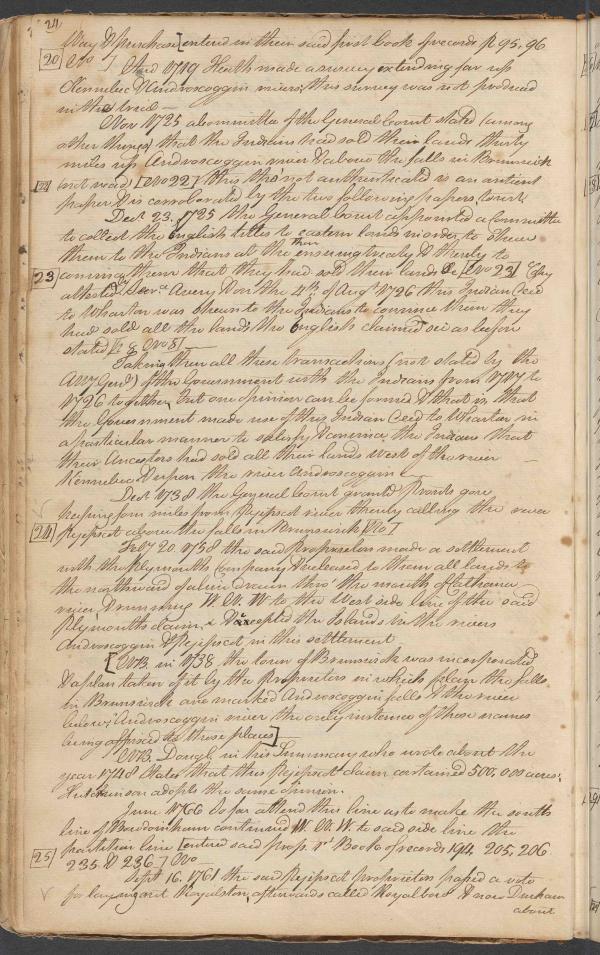 24
Way & Purchase [entered in their said first book of records p. 95, 96
20 No ]
And 1719 Heath made a survey extending far up
Kennebec & Androscoggin rivers, this survey was not produced
in the trial —
Nov 1725 a committee of the General Court stated (among
other things) that the Indians had sold their lands thirty
miles up Androscoggin river & above the falls in Brunswick
22 (not read) [No 22] this tho' not authenticated is an antient
paper & is corroborated by the two following papers to wit
Decr 23. 1725 the General Court appointed a Committee
to collect the English titles to eastern lands in order to shew
them to the Indians at the then ensuing treaty & thereby to
23 convince them that they had sold their lands &c [No 23] Copy
attested Avery & on the 4th of Augt 1726 this Indian Deed
to Wharton was shewn to the Indians to convince them they
had sold all the lands the English claimed &c as before
stated [p 8 No 8] —
Taking then all these transactions (not stated by the
Atty Genl) of the Government with the Indians from 1717 to
1726 together, but one opinion can be formed & that is, that
the Government made use of this Indian Deed to Wharton in
a particular manner to satisfy & convince the Indians that
their Ancestors had sold all their lands West of the river
Kennebec & upon the river Androscoggin —
Decr 1738 the General Court granted Proads gore
keeping four miles from Pejepscot river thereby calling the river
24 Pejepscot above the falls in Brunswick [No ]
Feby 20. 1758 the said Proprietors made a settlement
with the Plymouth Company & released to them all lands to
the northward of a line drawn thro' the mouth of Cathance
river & running W. N. W to the West side line of the said
Plymouth claim, & excepted the Islands in the rivers
Androscoggin & Pejepscot in this settlement
[NB. in 1738 the town of Brunswick was incorporated
& a plan taken of it by the Proprietors in which plan the falls
in Brunswick are marked Androscoggin falls & the river
below, Androscoggin river the only instance of those names
being affixed to those places] —
NB. Dougls in his Summary who wrote about the
year 1748 states that this Pejepscot claim contained 500,000 acres;
Hutchinson adopts the same opinion.
June 1766 So far altered this line as to make the south
line of Bowdoinham continued W. N. W. to said side line the
partition line [entered said prop. rs Book of records 194, 205, 206
25 235. & 236 ] No —
Sept 16. 1761 the said Pejepscot proprietors passed a vote
for laying out Royalston, afterwards called Royalboro & now Durham
about